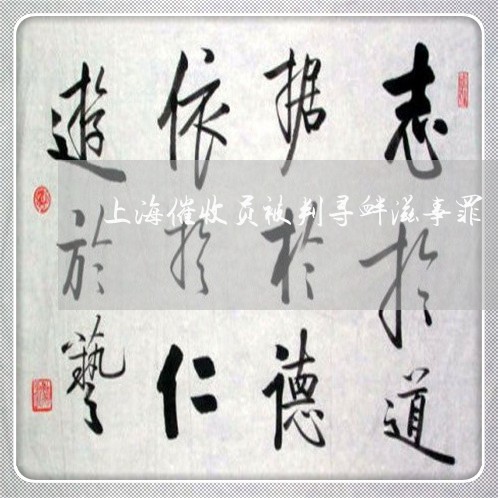 志於道
据於德
依於仁
遊於藝
上海催收员被判寻衅滋事罪